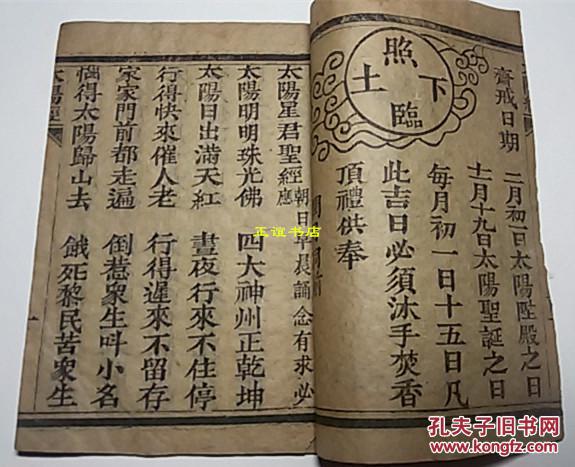 齋戒日期
二月初一日太陽陞殿之日
十一月十九日太陽聖誕之日
每月初一日十五日凡
此吉日必須沐手焚香
頂禮供奉
照臨下土
太陽星君聖經 朝日早晨誦念有求必應
太陽明明珠光佛 四大神州正乾坤
太陽日出滿天紅 晝夜行來不住停
行得快來催人老 行得遲來不留存
家家門前都走遍 倒惹眾生叫小名
惱得太陽歸山去 餓死黎民苦眾生
太陽經
正谊书店
孔夫子旧书网
WWW.KONGFZ.COM